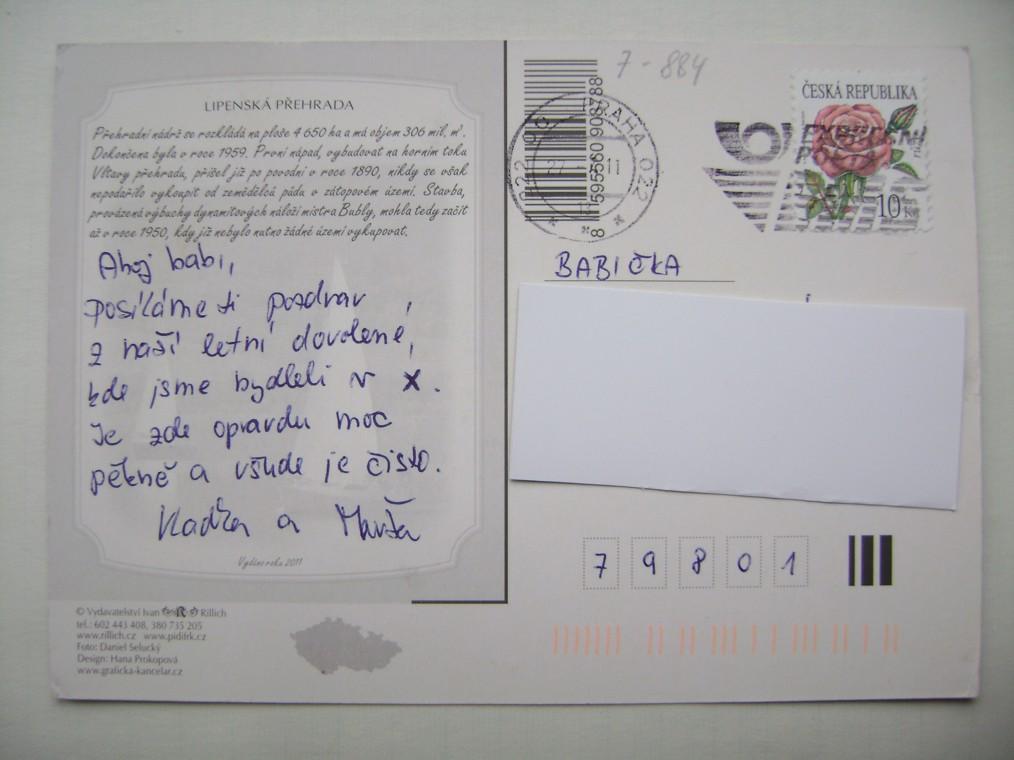 LIPENSKÁ PŘEHRADA
Přehradní nádrž se rozkládá na ploše 4 650 ha a má objem 306 mil. m³.
Dokončena byla v roce 1959. První nápad, vybudovat na horním toku
Vltavy přehradu, přišel již po povodni v roce 1890, nikdy se však
nepodařilo vykoupit od zemědělců půdu v zátopovém území. Stavba,
provázená výbuchy dynamitových náloží mistra Bubly, mohla tedy začít
až v roce 1950, kdy již nebylo nutno žádné území vykupovat.
Ahoj babi,
posíláme ti pozdrav
z naší letní dovolené,
kde jsme bydleli v X.
Je zde opravdu moc
pěkně a všude je čisto.
Kadka a Marťa
Vydáno roku 2011
© Vydavatelství Ivan R Rillich
tel.: 602 443 408, 380 735 205
www.rillich.cz www.pidifrk.cz
Foto: Daniel Selucký
Design: Hana Prokopová
www.graficka-kancelar.cz
7-884
8 595560 908788
PRAHA 022
ČESKÁ REPUBLIKA
10 Kč
BABIČKA
7 9 8 0 1